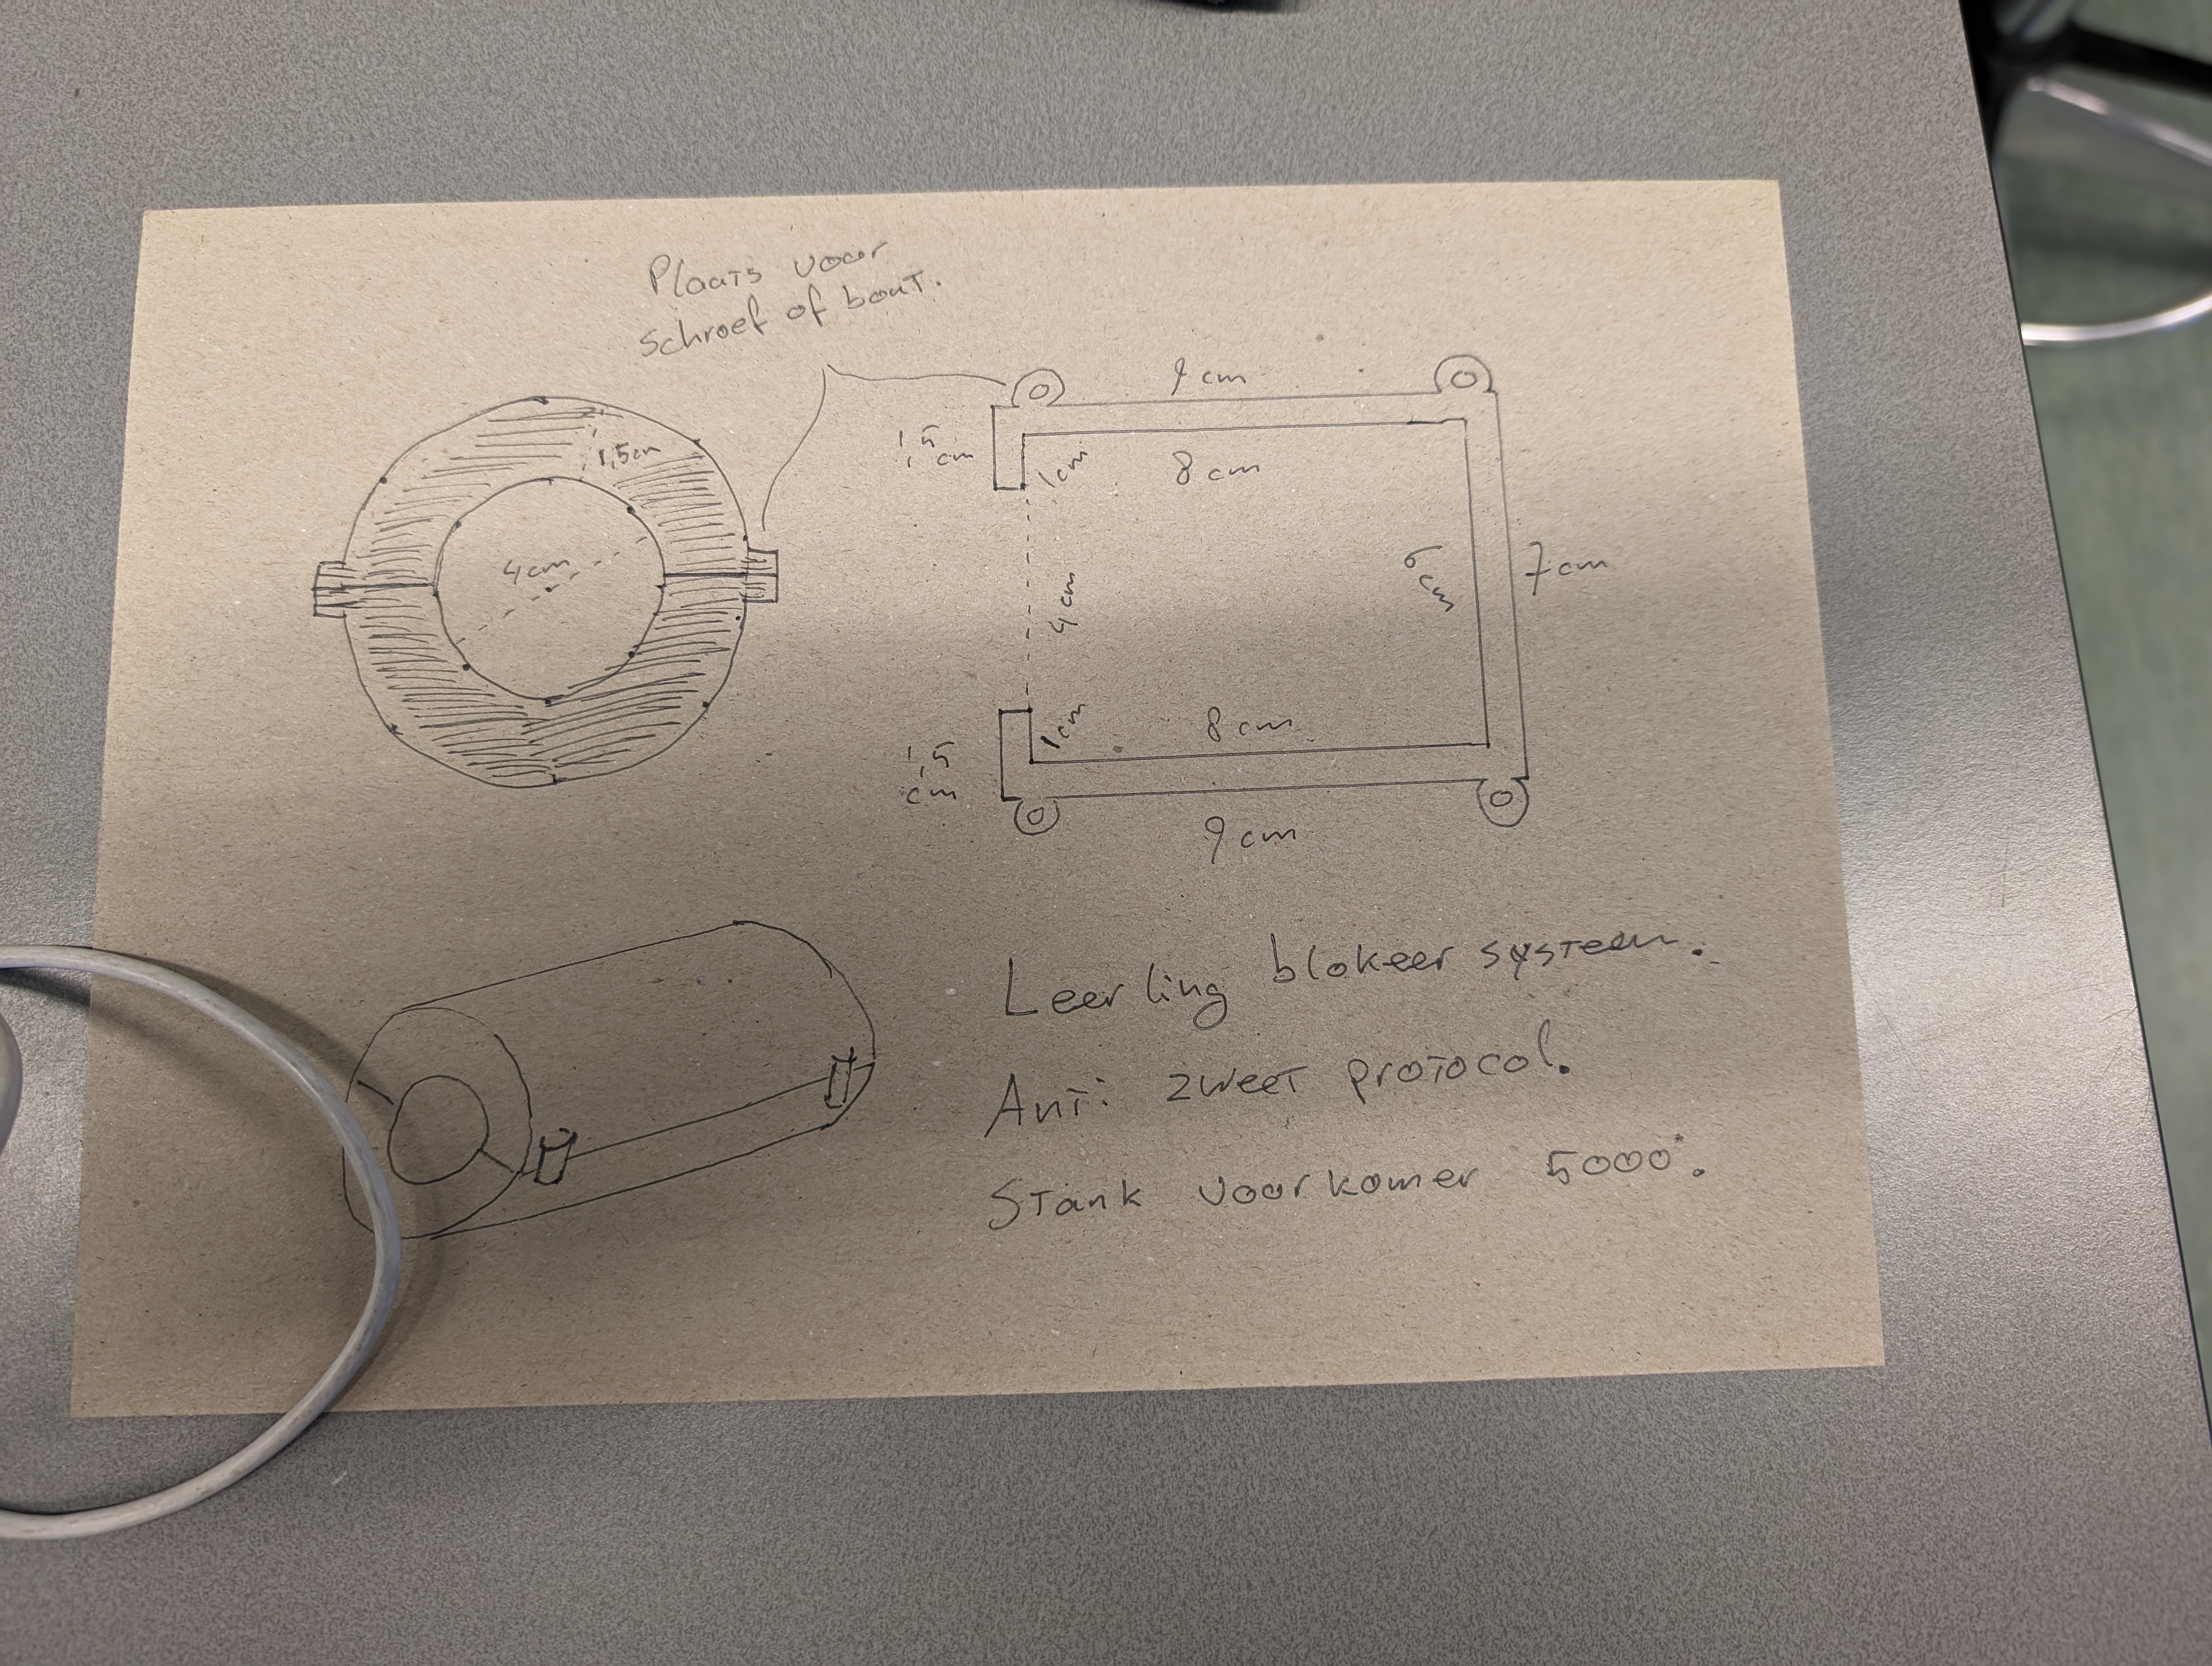 Plaats voor
schroef of bout.
1,5cm
4cm
9 cm
1,5
cm
1cm
8 cm
4 cm
6 cm
7 cm
1cm
8 cm
1,5
cm
9 cm
Leerling blokeer systeem.
Anti zweet protocol.
Stank voorkomer 5000.